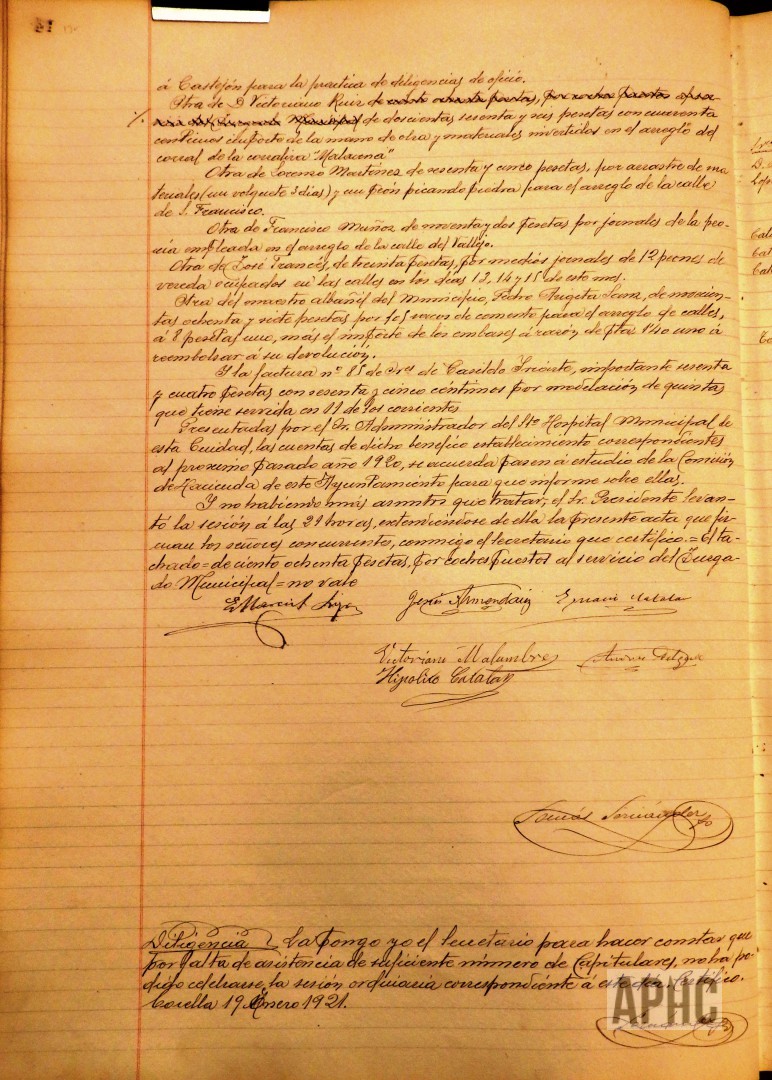 á Castejón para la práctica de diligencias de oficio.
Otra de D. Victoriano Ruiz de ciento ochenta pesetas, por coches puestos al ser-
vicio del Juzgado Municipal de doscientas sesenta y seis pesetas con cuarenta
céntimos importe de la mano de obra y materiales invertidos en el arreglo del
corral de la corraliza "Malacena"
Otra de Lorenzo Martínez de sesenta y cinco pesetas, por arrastre de ma-
teriales (un volquete 3 días) y un peón picando piedra para el arreglo de la calle
de S. Francisco.
Otra de Francisco Muñoz de noventa y dos pesetas por jornales de la
empleada en el arreglo de la calle del Vallejo.
Otra de José Francés, de treinta pesetas, por medios jornales de 12 peones de
vereda ocupados en las calles en los días 13, 14 y 15 de este mes.
Otra del maestro albañil del Municipio, Pedro Sanz, de novecien-
tas ochenta y siete pesetas por 105 sacos de cemento para el arreglo de calles,
á 8 pesetas uno, más el importe de los embases á razón de ptas 1'40 uno á
reembolsar á su devolución.
Y la factura nº 85 de de Casildo Iriarte, importante sesenta
y cuatro pesetas con sesenta y cinco céntimos por modelación de quintas
que tiene servida en 11 de los corrientes.
Presentadas por el Sr. Administrador del Sto Hospital Municipal de
esta Ciudad, las cuentas de dicho benéfico establecimiento correspondientes
al próximo pasado año 1920, se acuerda pasen á estudio de la Comisión
de Hacienda de este Ayuntamiento para que informe sobre ellas.
Y no habiendo más asuntos que tratar, el Sr. Presidente levan-
tó la sesión á las 21 horas, extendiéndose de ella la presente acta que fir-
man los señores concurrentes, conmigo el secretario que certifico.= El ta-
chado = de ciento ochenta pesetas, por coches puestos al servicio del Juzga-
do Municipal = no vale
Jesús Armendáriz
Victoriano Malumbres
Hipólito Catalán
Tomás
Diligencia La pongo yo el Secretario para hacer constar que
por falta de asistencia de suficiente número de Capitulares, no ha po-
dido celebrarse, la sesión ordinaria correspondiente á este día. Certifico.
Corella 19 Enero 1921.
APHC